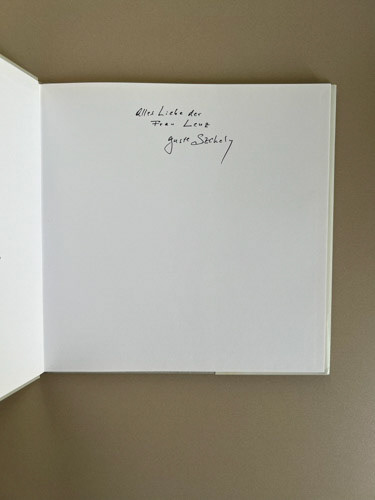 Alles Liebe der
Frau Lenz
guste Székely